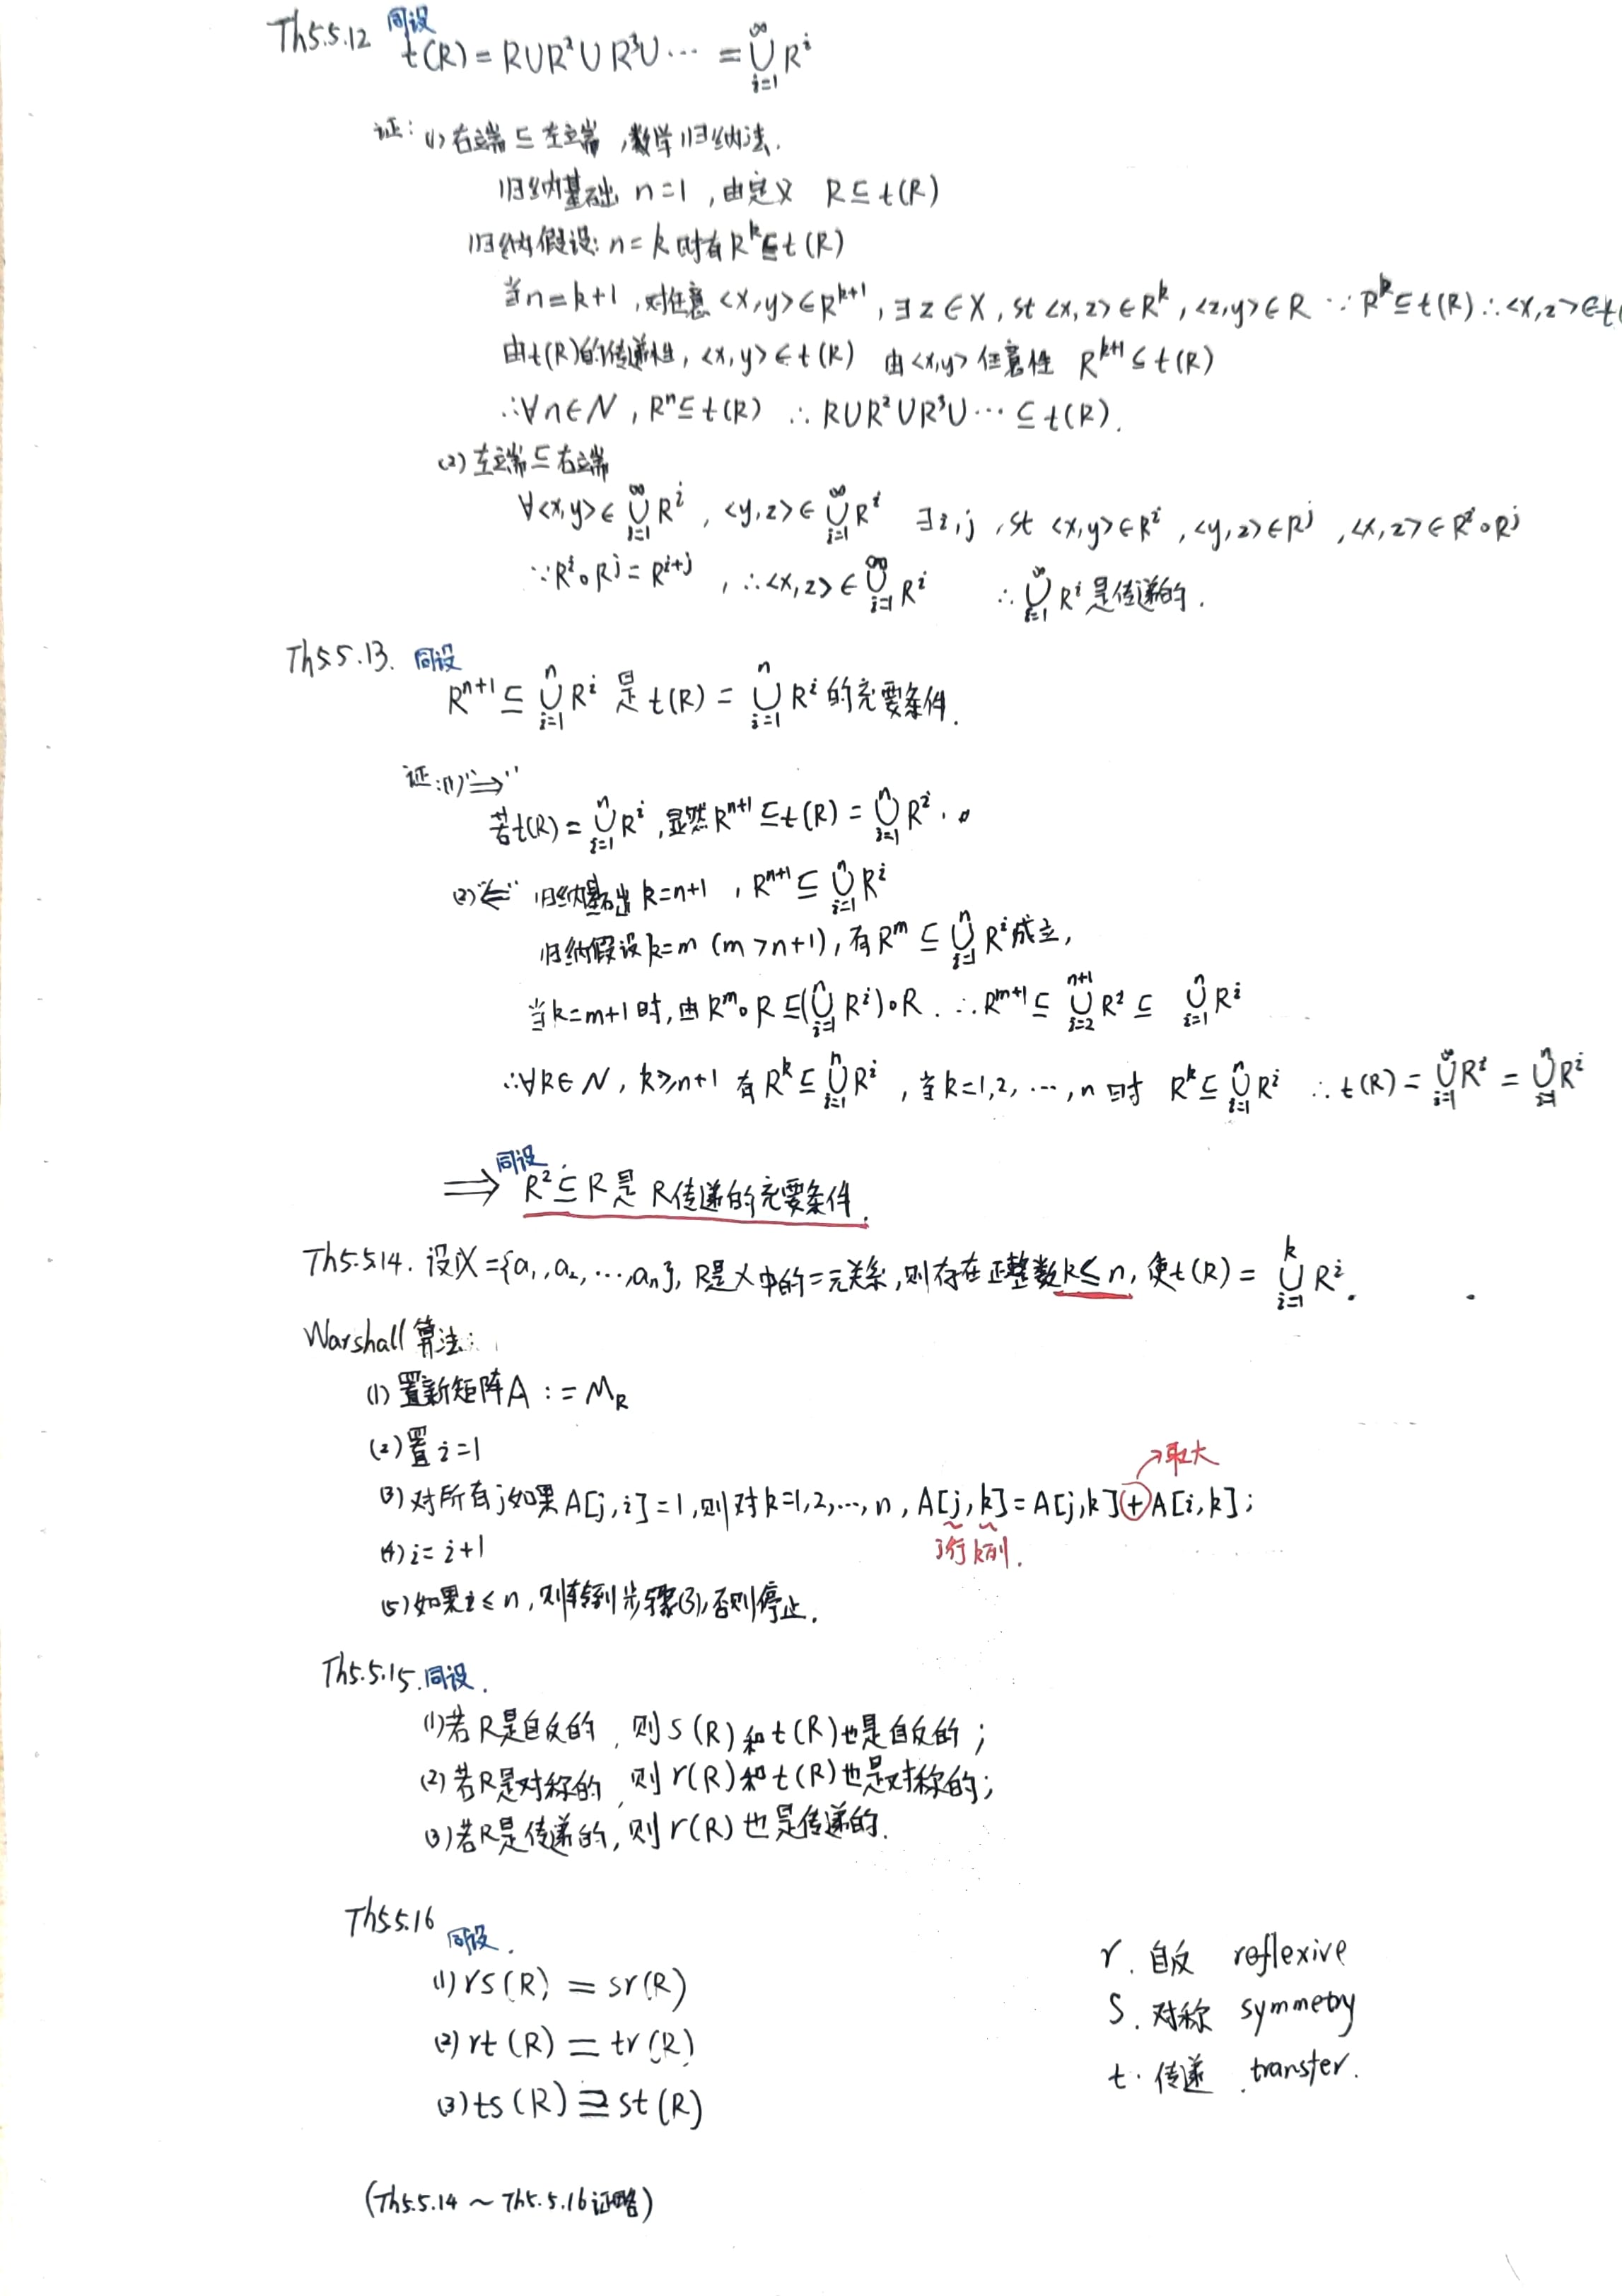 Th5.5.12 同设
t(R) = R∪R²∪R³∪⋯ = ⋃_{i=1}^{∞} R^i
证: (1) 右端 ⊆ 左端, 数学归纳法.
归纳基础 n=1, 由定义 R ⊆ t(R)
归纳假设: n=k 时有 R^k ⊆ t(R)
当 n=k+1, 对任意 <x,y>∈R^{k+1}, ∃z∈X, st <x,z>∈R^k, <z,y>∈R ∵ R^k ⊆ t(R) ∴ <x,z>∈t(
由t(R)的传递性, <x,y>∈t(R) 由<x,y>任意性 R^{k+1} ⊆ t(R)
∴∀n∈N, R^n ⊆ t(R) ∴ R∪R²∪R³∪⋯ ⊆ t(R).
(2) 左端 ⊆ 右端
∀<x,y>∈ ⋃_{i=1}^{∞} R^i, <y,z>∈ ⋃_{i=1}^{∞} R^i ∃i,j, st <x,y>∈R^i, <y,z>∈R^j, <x,z>∈R^i∘R^j
∵R^i∘R^j = R^{i+j}, ∴<x,z>∈ ⋃_{i=1}^{∞} R^i ∴ ⋃_{i=1}^{∞} R^i 是传递的.
Th5.5.13. 同设
R^{n+1} ⊆ ⋃_{i=1}^{n} R^i 是 t(R) = ⋃_{i=1}^{n} R^i 的充要条件.
证:(1)"⇒"
若t(R) = ⋃_{i=1}^{n} R^i, 显然 R^{n+1} ⊆ t(R) = ⋃_{i=1}^{n} R^i.
(2)"⇐" 归纳基础 k=n+1, R^{n+1} ⊆ ⋃_{i=1}^{n} R^i
归纳假设 k=m (m>n+1), 有 R^m ⊆ ⋃_{i=1}^{n} R^i 成立,
当k=m+1时, 由 R^m∘R ⊆ (⋃_{i=1}^{n} R^i)∘R. ∴R^{m+1} ⊆ ⋃_{i=2}^{n+1} R^i ⊆ ⋃_{i=1}^{n} R^i
∴∀k∈N, k≥n+1 有 R^k ⊆ ⋃_{i=1}^{n} R^i, 当k=1,2,⋯,n 时 R^k ⊆ ⋃_{i=1}^{n} R^i ∴ t(R) = ⋃_{i=1}^{∞} R^i = ⋃_{i=1}^{n} R^i
⟹ 同设 R² ⊆ R 是 R传递的充要条件.
Th5.5.14. 设X={a₁,a₂,⋯,aₙ}, R是X中的二元关系, 则存在正整数k≤n, 使t(R) = ⋃_{i=1}^{k} R^i.
Warshall 算法:
(1) 置新矩阵A := M_R
(2) 置 i=1
→取大
(3) 对所有j如果A[j,i]=1, 则对k=1,2,⋯,n, A[j,k]=A[j,k]+A[i,k];
j行 k列.
(4) i=i+1
(5) 如果i≤n, 则转到步骤(3), 否则停止.
Th5.5.15.同设.
(1)若R是自反的, 则 s(R)和t(R)也是自反的;
(2)若R是对称的, 则 r(R)和t(R)也是对称的;
(3)若R是传递的, 则 r(R)也是传递的.
Th5.5.16 同设.
(1) rs(R) = sr(R)
(2) rt(R) = tr(R)
(3) ts(R) ⊇ st(R)
r. 自反 reflexive
S. 对称 symmetry
t. 传递 transfer.
(Th5.5.14 ~ Th5.5.16 证略)